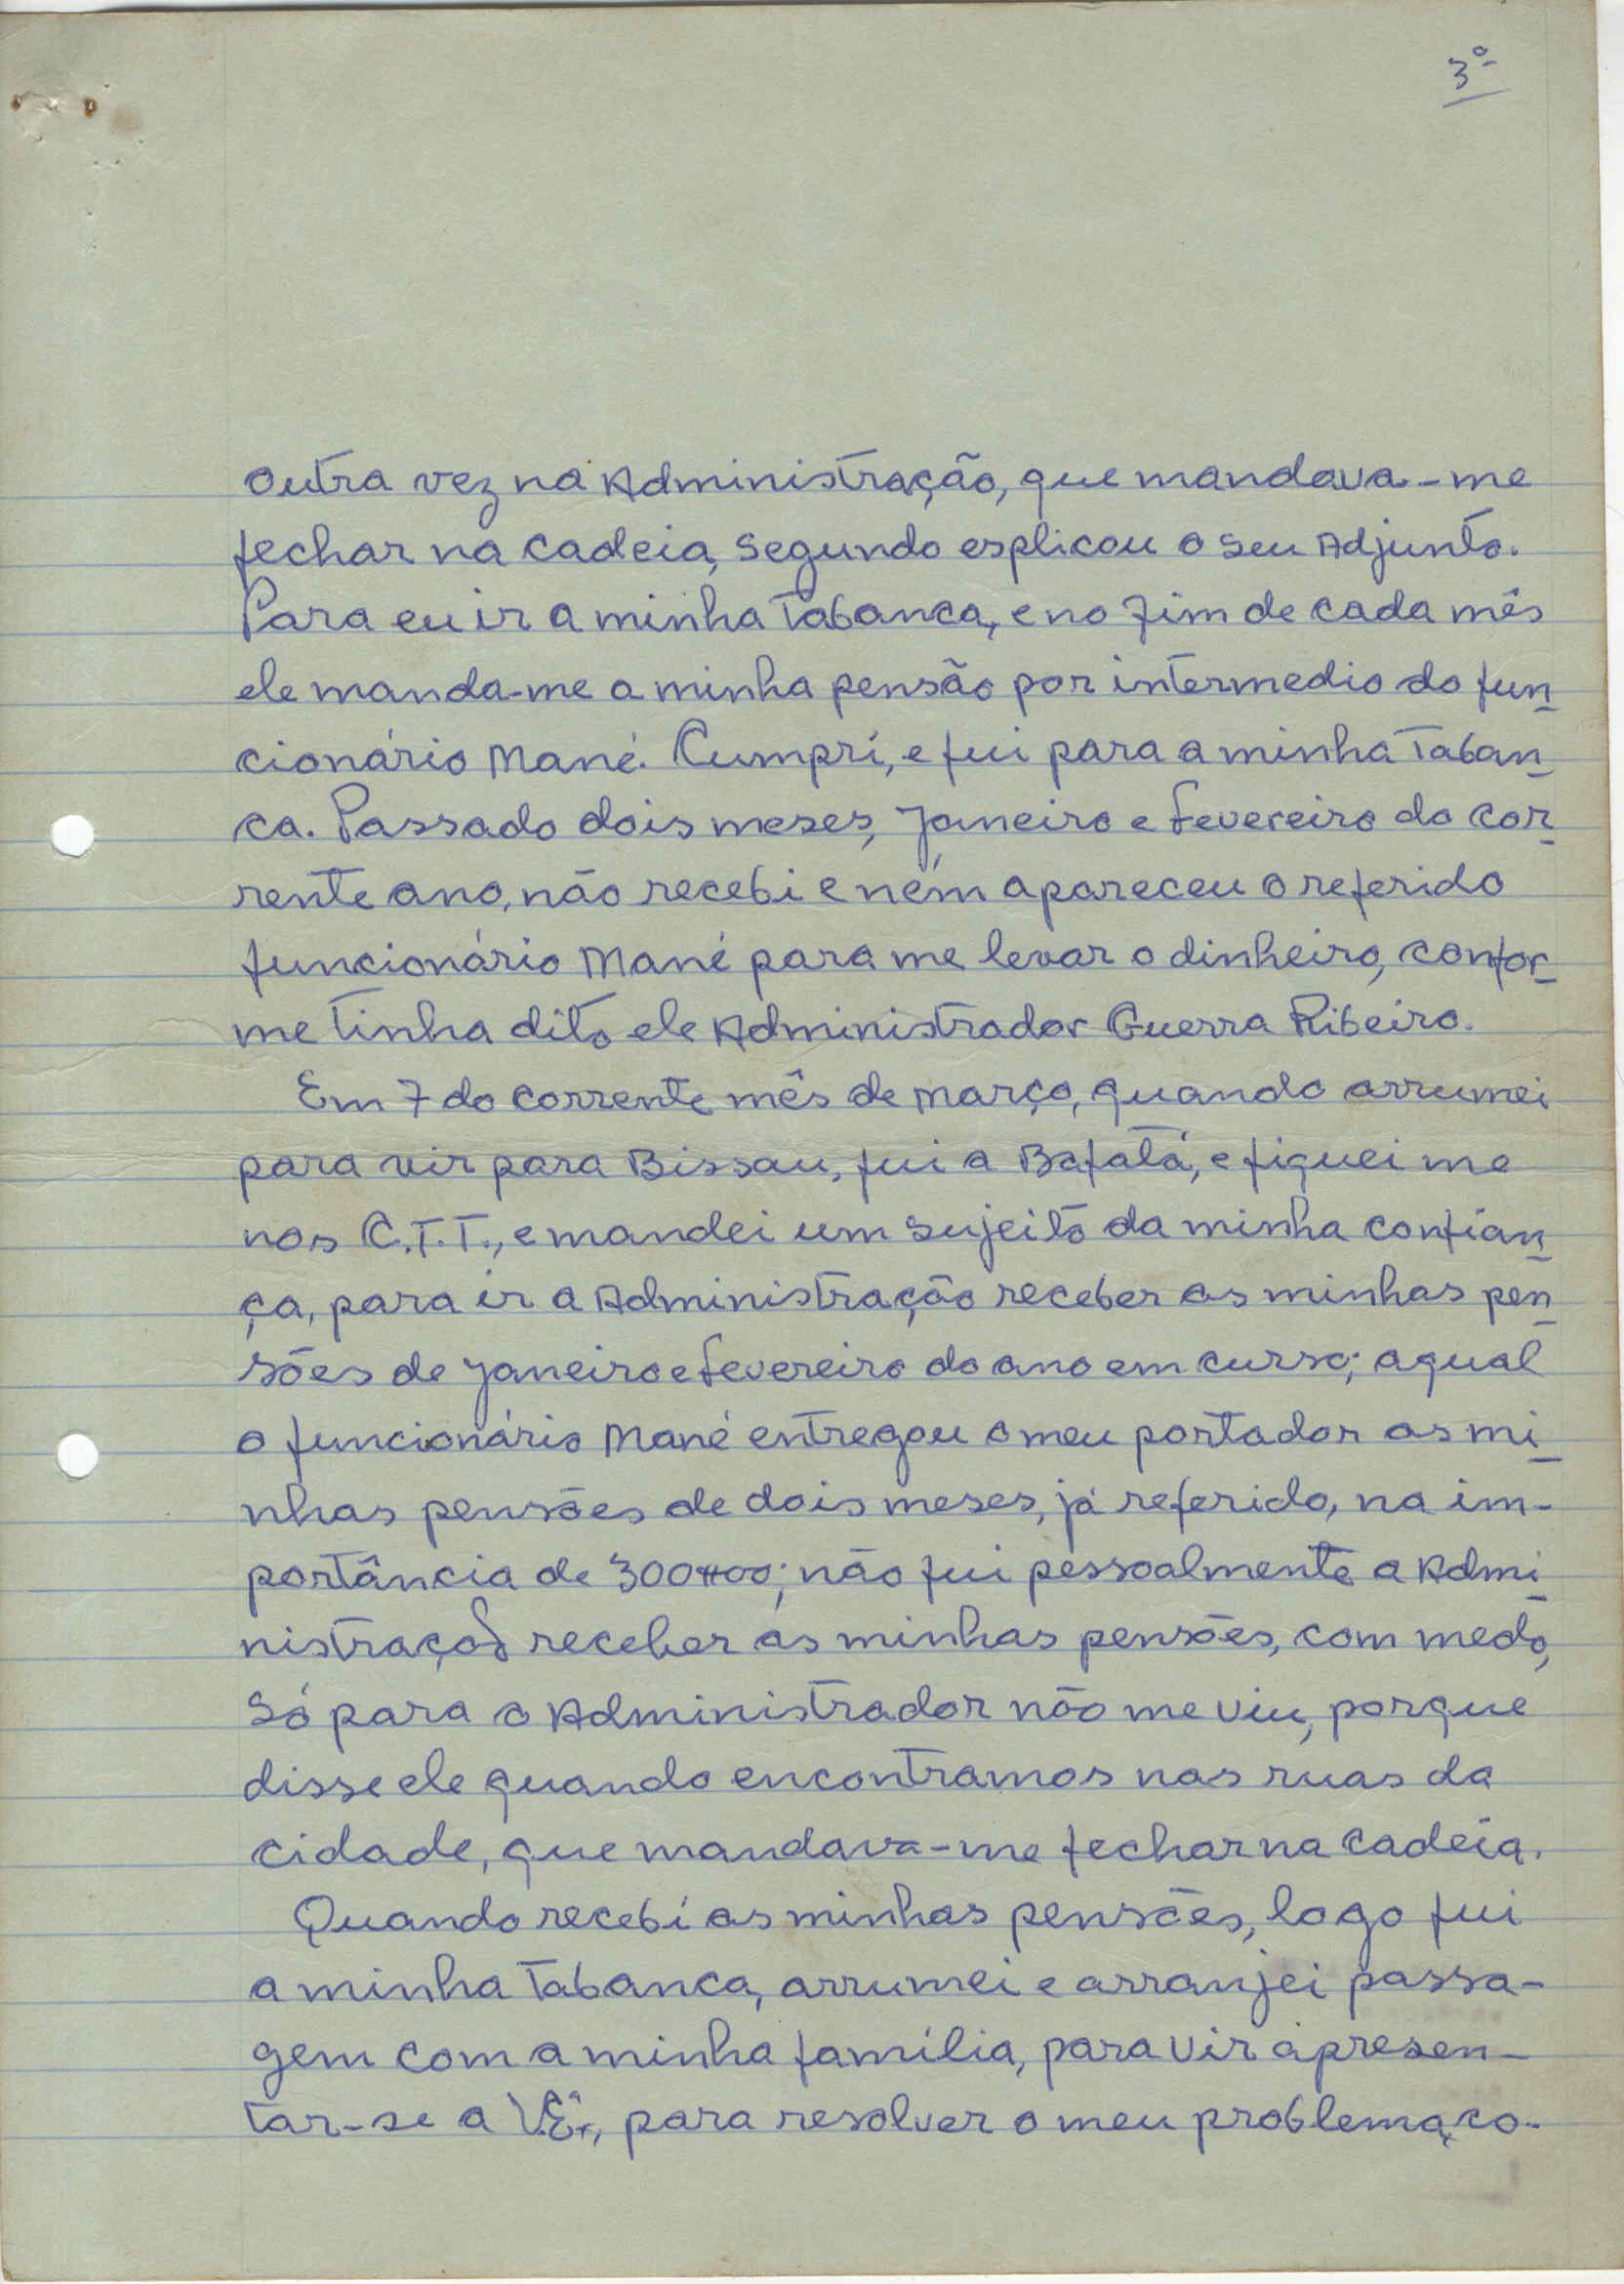 3º
outra vez na Administração, que mandava-me
fechar na cadeia, segundo esplicou o seu Adjunto.
Para eu ir a minha Tabanca, e no fim de cada mês
ele manda-me a minha pensão por intermedio do fun-
cionário Mané. Cumprí, e fui para a minha Taban-
ca. Passado dois meses, Janeiro e Fevereiro do cor-
rente ano, não recebi e nem apareceu o referido
funcionário Mané para me levar o dinheiro, confor-
me tinha dito ele Administrador Guerra Ribeiro.
Em 7 do corrente mês de Março, quando arrumei
para vir para Bissau, fui a Bafatá, e fiquei me
nos C.T.T., e mandei um sujeito da minha confian-
ça, para ir a Administração receber as minhas pen-
sões de Janeiro e Fevereiro do ano em curso; aqual
o funcionário Mané entregou o meu portador as mi-
nhas pensões de dois meses, já referido, na im-
portância de 300$00; não fui pessoalmente a Admi-
nistração receber as minhas pensões, com medo,
só para o Administrador não me viu, porque
disse ele quando encontramos nas ruas da
cidade, que mandava-me fechar na cadeia.
Quando recebí as minhas pensões, logo fui
a minha Tabanca, arrumei e arranjei passa-
gem com a minha família, para vir apresen-
tar-se a V.Exª, para resolver o meu problema, co-